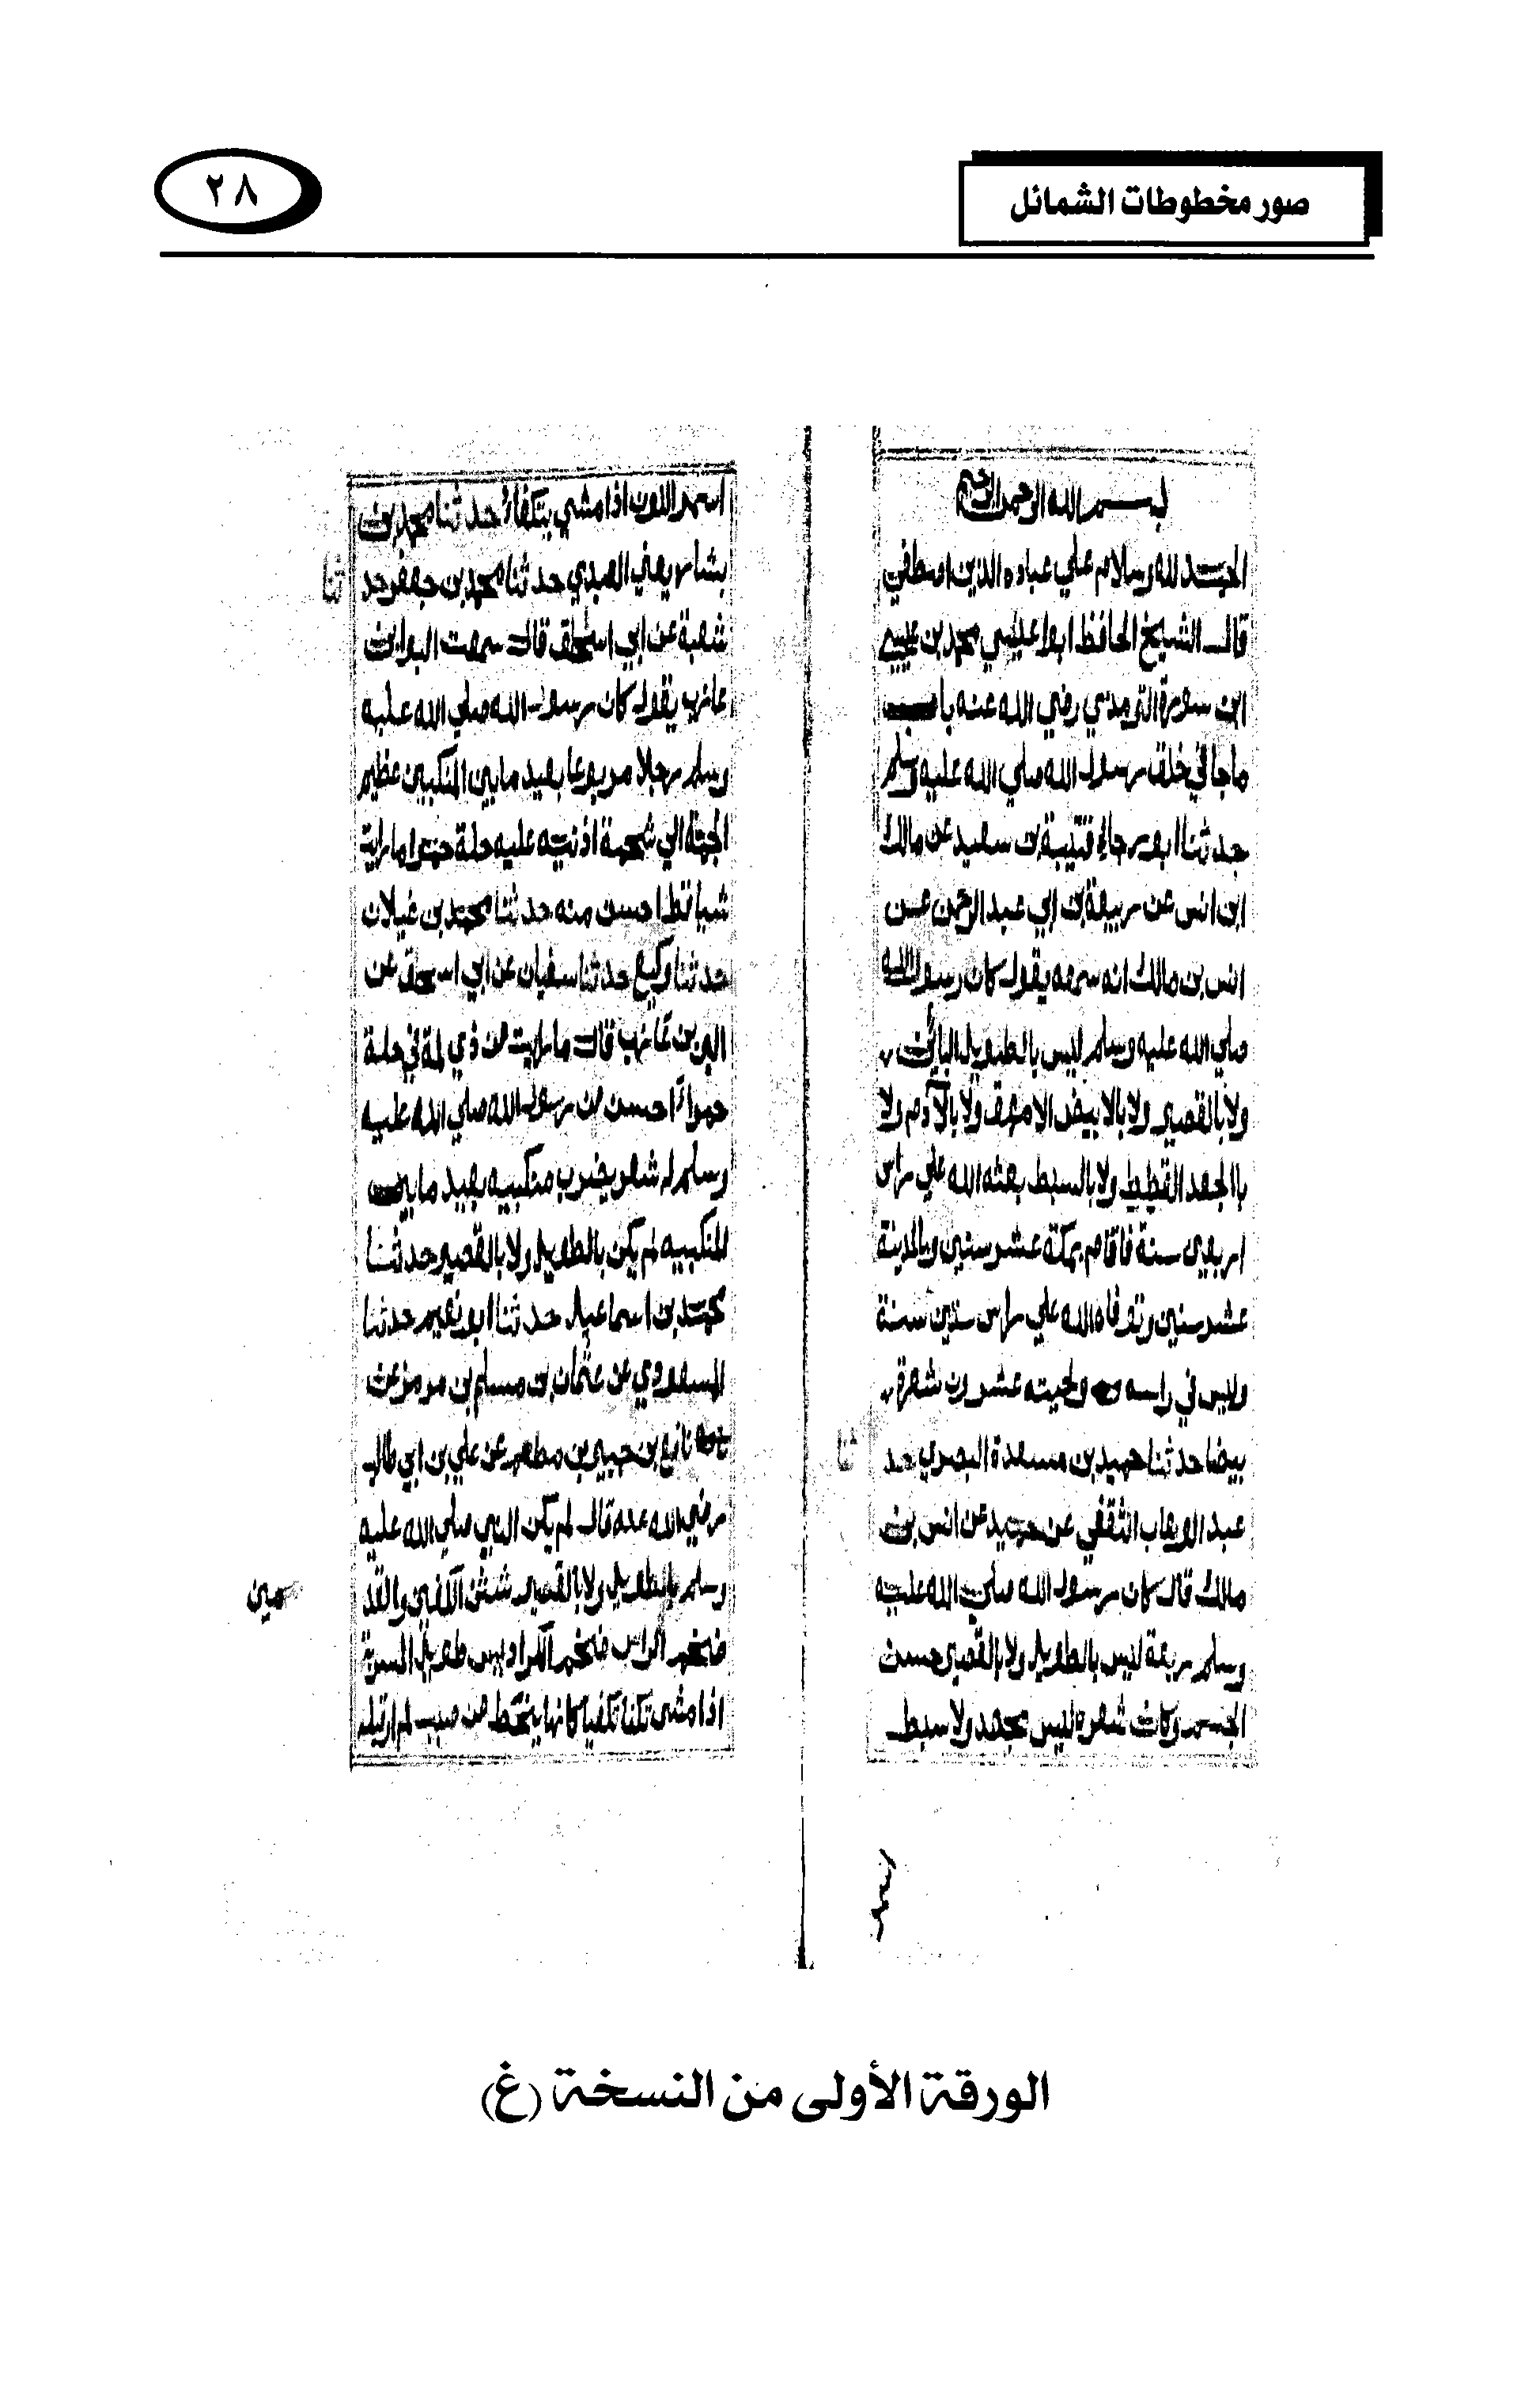 صور مخطوطات الشمائل
٢٨
بسم الله الرحمن الرحيم
الحمد لله وسلام علي عباده الذين اصطفي
قال الشيخ الحافظ ابوا عليسي محمد بن عيسي
ابن سورة الترمدي رضي الله عنه باب
ماجا في خلق رسول الله صلي الله عليه وسلم
حدثنا ابو رجاء قتيبة بن سعيد عن مالك
ابن انس عن ربيعة بن ابي عبد الرحمن عن
انس بن مالك انه سمعه يقول كان رسول الله
صلي الله عليه وسلم ليس بالطويل البائن
ولا بالقصير ولا بالابيض الامهق ولا بالآدم ولا
باالجعد القطط ولا بالسبط بعثه الله علي راس
اربعين سنة فاقام بمكة عشر سنين وبالمدينة
عشر سنين وتوفاه الله علي راس ستين سنة
وليس في راسه ولحيته عشرون شعرة
بيضا حدثنا حميد بن مسعدة البصري حد
ثنا
عبد الوهاب الثقفي عن حميد عن انس بن
مالك قال كان رسول الله صلي الله عليه
وسلم ربعة ليس بالطويل ولا بالقصير حسن
الجسم وكان شعره ليس بجعد ولا سبط
اسمر اللون اذا مشي يتكفاء حدثنا محمد بن
بشار يعني العبدي حدثنا محمد بن جعفر حد
ثنا
شعبة عن ابي اسحق قال سمعت البرا بن
عازب يقول كان رسول الله صلي الله عليه
وسلم رجلا مربوعا بعيد ما بين المنكبين عظيم
الجمة الي شحمة اذنيه عليه حلة حمرا ما رايت
شيا قط احسن منه حدثنا محمد بن غيلان
حدثنا وكيع حدثنا سفيان عن ابي اسحق عن
البر بن عازب قال ما رايت من ذي لمة في حلة
حمراء احسن من رسول الله صلي الله عليه
وسلم له شعر يضرب منكبيه بعيد ما بين
المنكبيه لم يكن بالطويل ولا بالقصير حدثنا
محمد بن اسماعيل حدثنا ابو نعيم حدثنا
المسعودي عن عثمان بن مسلم بن هرمز عن
نافع بن جبير بن مطعم عن علي بن ابي طالب
رضي الله عنه قال لم يكن النبي صلي الله عليه
وسلم بالطويل ولا بالقصير شثن الكفين والقد
مين
ضخم الراس ضخم الكراديس طويل المسربة
اذا مشي تكفا تكفيا كانما ينحط من صبب لم ار قبله
الورقة الأولى من النسخة (غ)